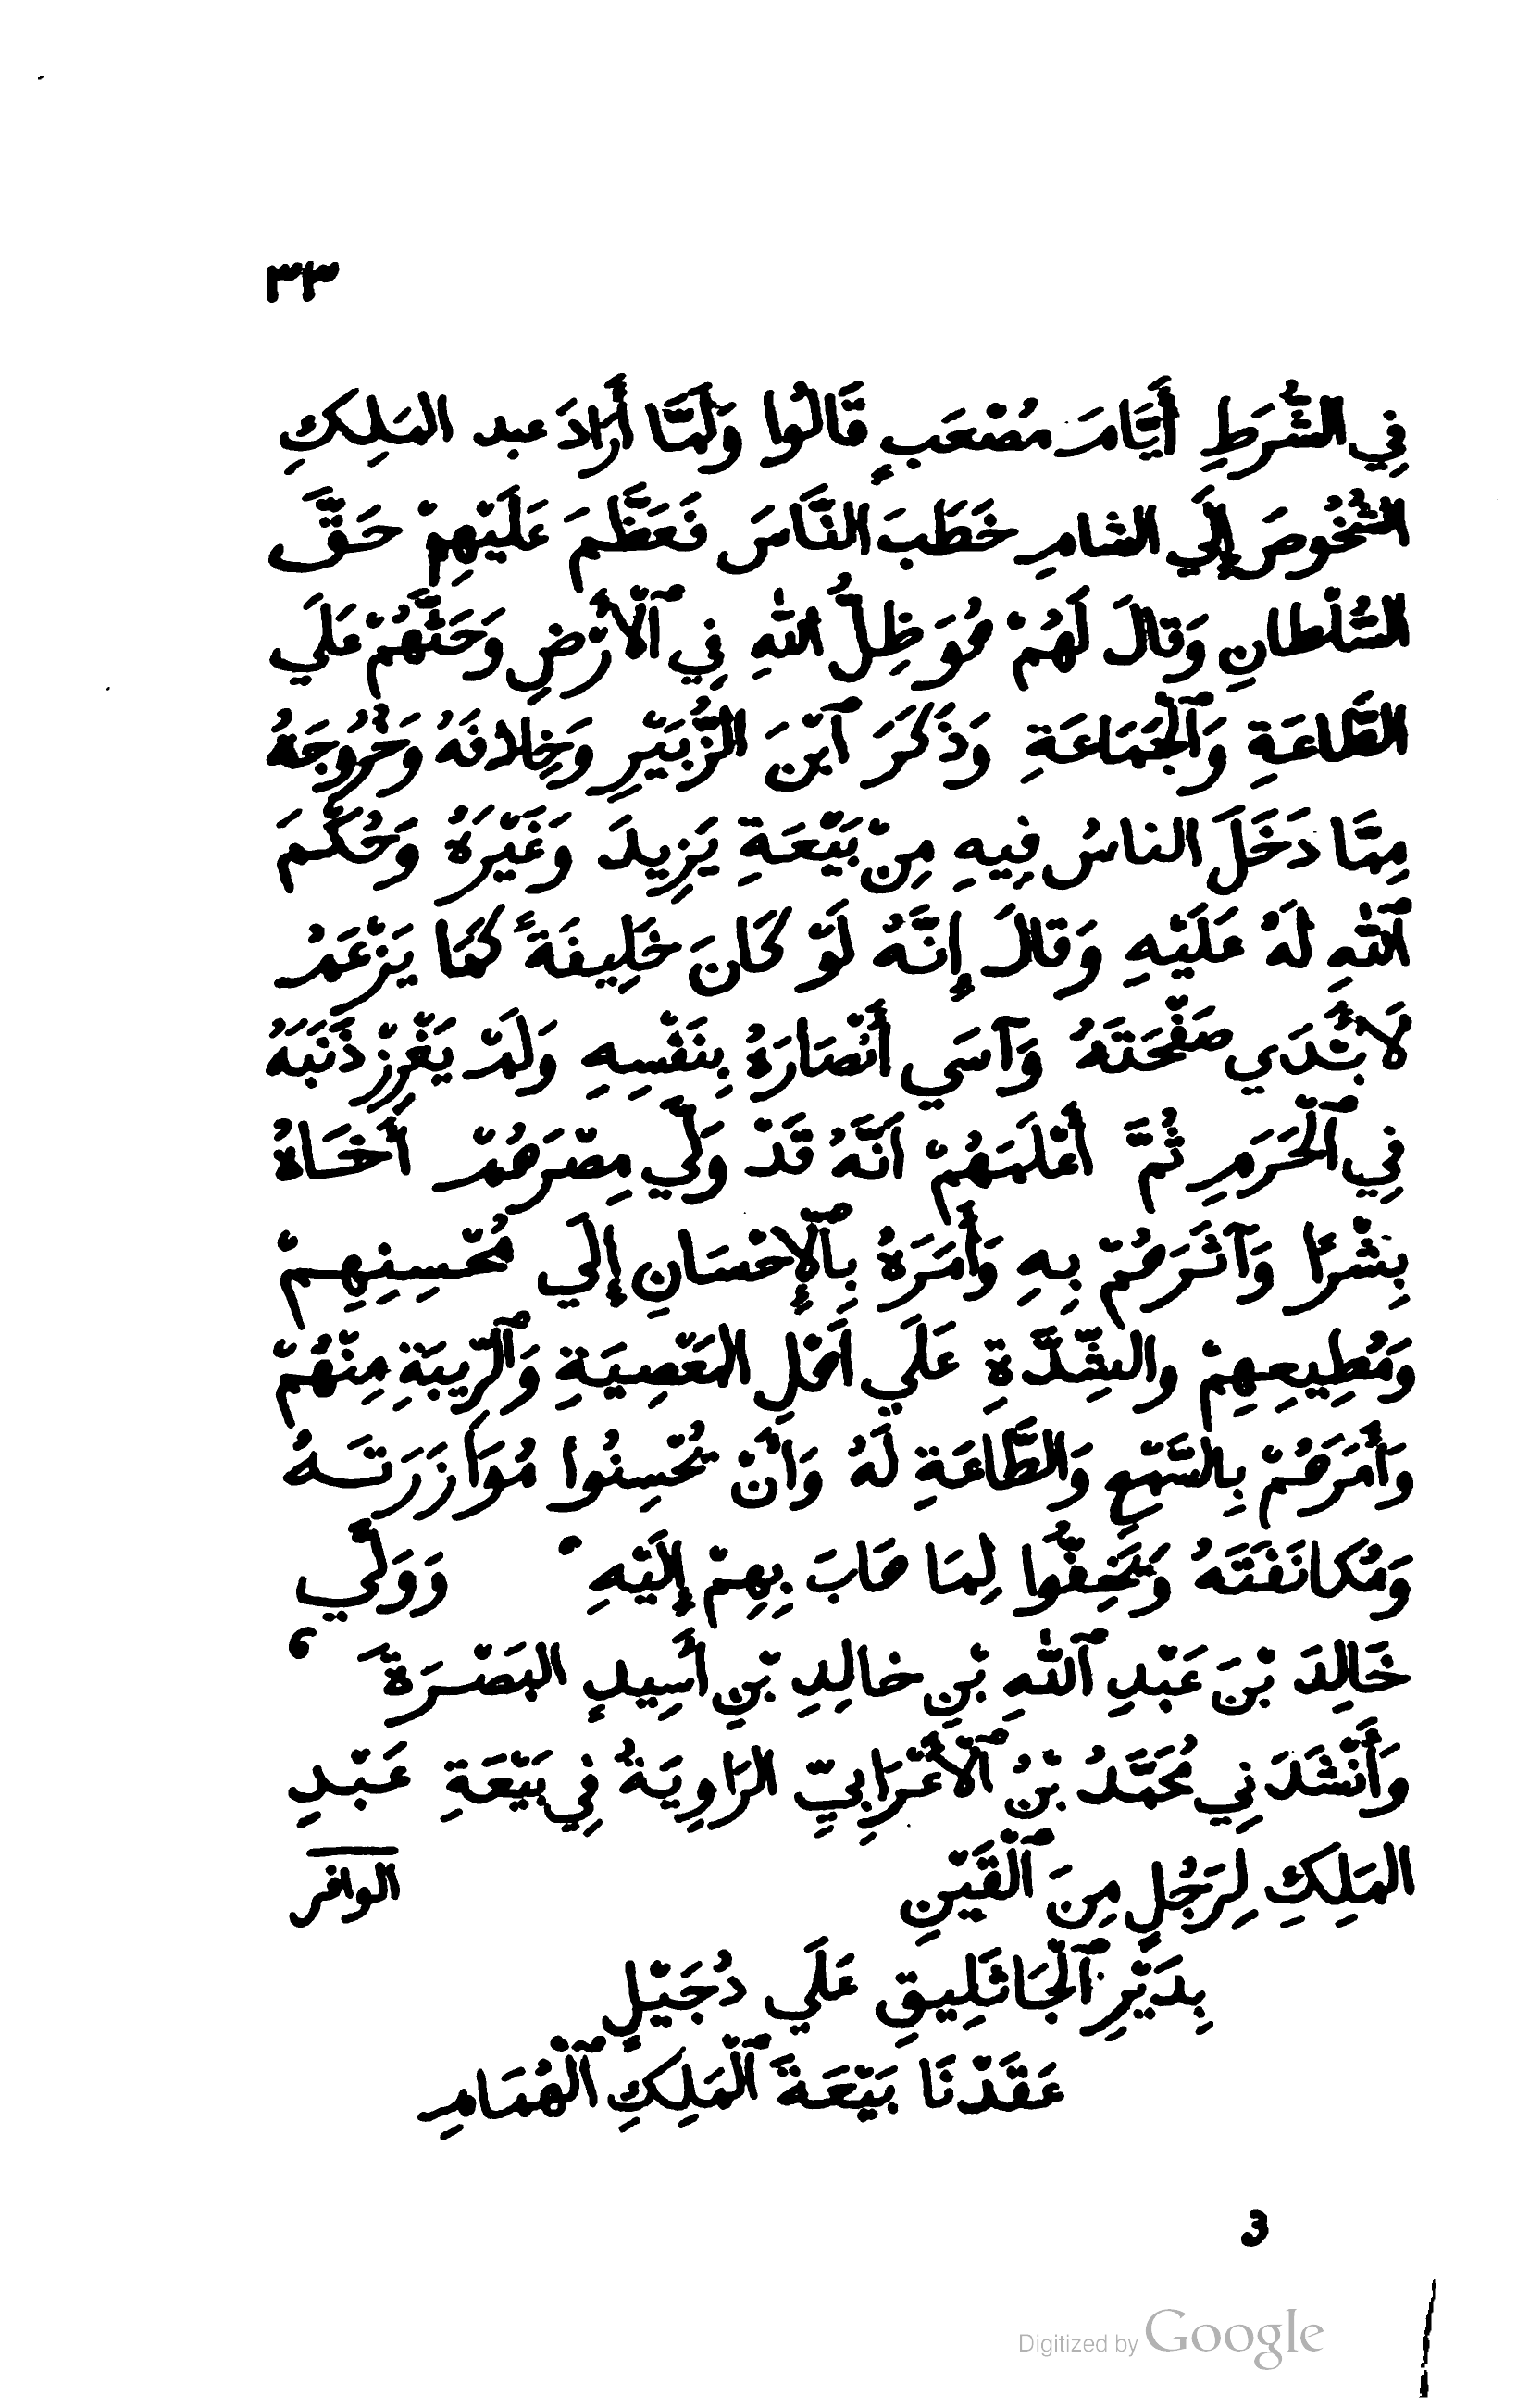 ٣٣
فِي الشُّرَطِ أَيَّامَ مُصْعَبٍ قَالُوا وَلَمَّا أَرَادَ عبد المَلِكِ
الشُّخُوصَ إِلَي الشام خَطَبَ النَّاسَ فَعَظَّمَ عَلَيْهِمْ حَقَّ
السُّلْطانِ وَقالَ لَهُمْ هُوَ ظِلُّ اللّٰهِ فِي ٱلْأَرْضِ وَحَثَّهُمْ عَلَي
الطَّاعَةِ وَٱلْجَمَاعَةِ وَذَكَرَ ٱبْنَ الزُّبَيْرِ وَخِلافَهُ وَخُرُوجَهُ
مِمَّا دَخَلَ الناسُ فِيهِ مِنْ بَيْعَةِ يَزِيدَ وَغَيْرَهُ وَحُكْمَ
ٱللّٰهِ لَهُ عَلَيْهِ وَقالَ إِنَّهُ لَوْ كَانَ خَلِيفَةً كَمَا يَزْعُمُ
لَأَبْدَي صَفْحَتَهُ وَآسَي أَنْصَارَهُ بِنَفْسِهِ وَلَمْ يَغْرِزْ ذَنَبَهُ
فِي ٱلْحَرَمِ ثُمَّ أَعْلَمَهُمْ أَنَّهُ قَدْ وَلَّي مِصْرَهُمْ أَخَاهُ
بِشْرًا وَآثَرَهُمْ بِهِ وَأَمَرَهُ بِٱلْإِحْسَانِ إِلَي مُحْسِنِهِمْ
وَمُطِيعِهِمْ والشِّدَّةِ عَلَي أَهْلِ المَعْصِيَةِ وَٱلرِّيبَةِ مِنْهُمْ
وَأَمَرَهُمْ بِالسَّمْعِ وَالطَّاعَةِ لَهُ وَأَنْ تُحْسِنُوا مُوَازَرَتَهُ
وَمُكانَفَتَهُ وَيَخِفُّوا لِمَا هَابَ بِهِمْ إِلَيْهِ ۰ وَوَلَّي
خَالِدَ بْنَ عَبْدِ ٱللّٰهِ بْنِ خالِدِ بْنِ أَسِيدٍ البَصْرَةَ ،
وَأَنْشَدَنِي مُحَمَّدُ بْنُ ٱلْأَعْرَابِيِّ الرَاوِيَةُ فِي بَيْعَةِ عَبْدِ
المَلِكِ لِرَجُلٍ مِنَ ٱلْقَيْنِ الوافر
بِدَيْرِ ٱلْجَاثَلِيقِ عَلَي دُجَيْلٍ
عَقَدْنَا بَيْعَةَ ٱلْمَلِكِ ٱلْهُمَامِ
3
Digitized by Google